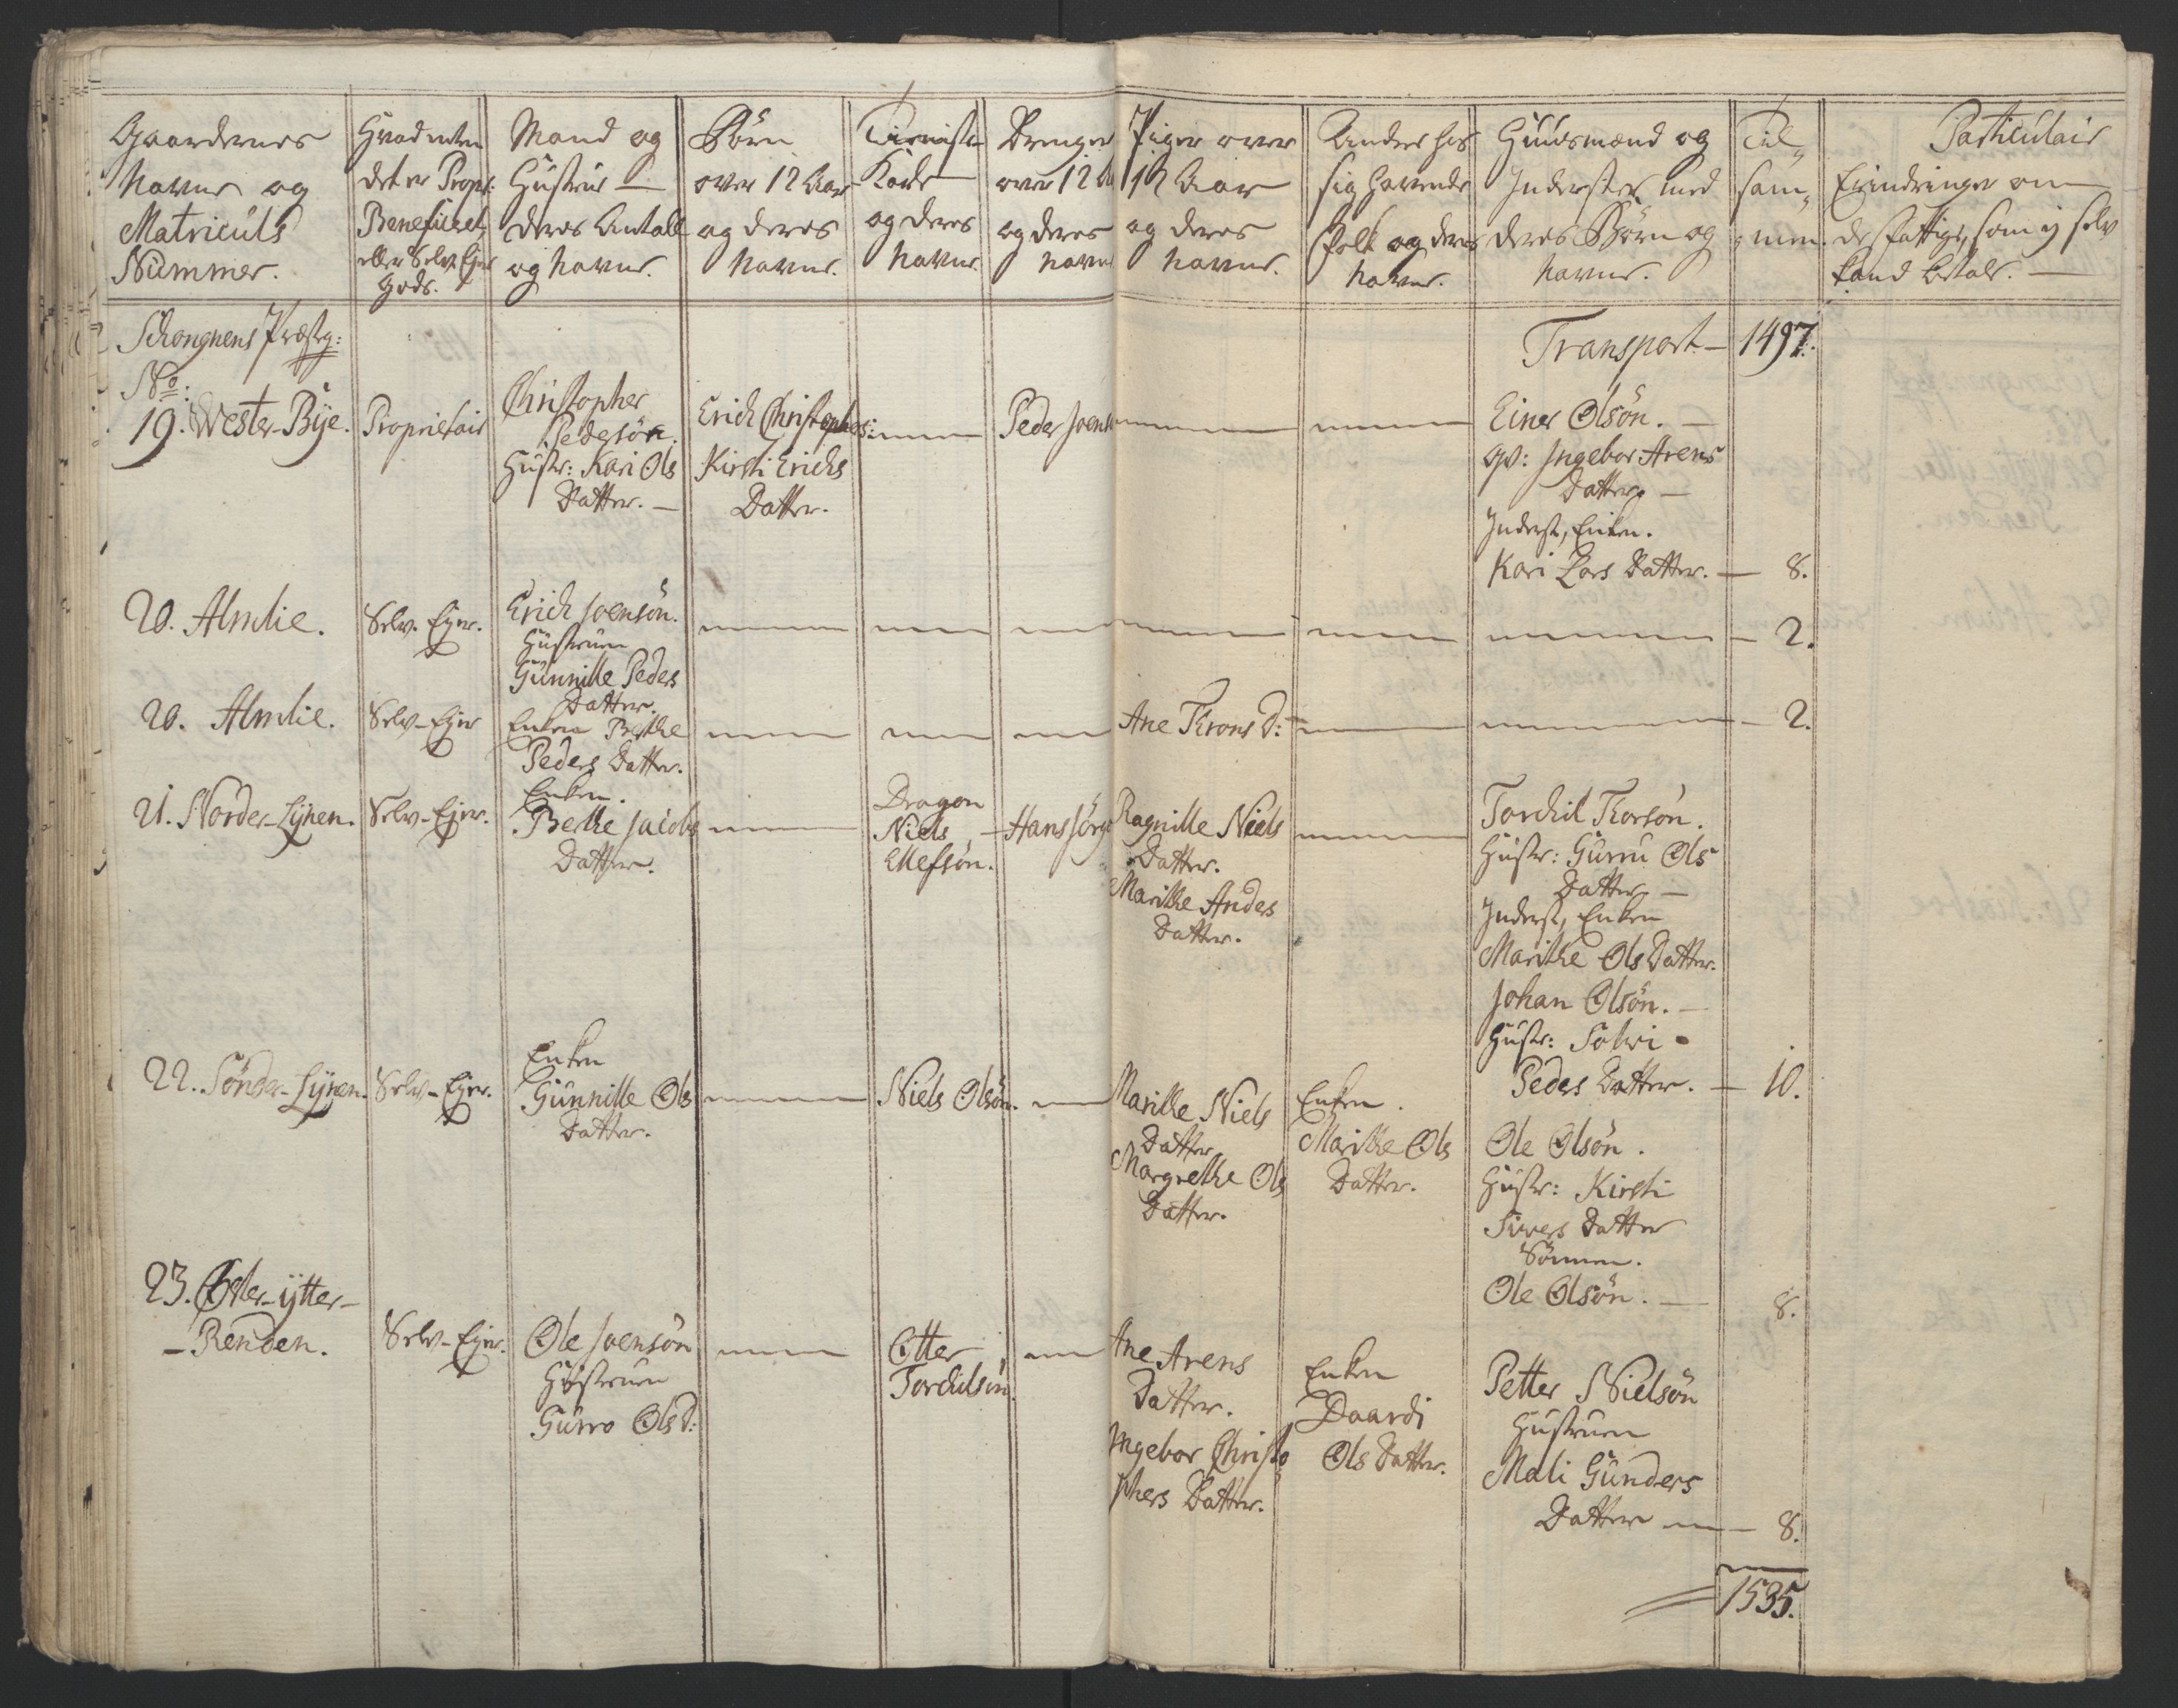 Gaardernes
Navne og
Matriculs
Nummer.
Hvad enten
det er Propr:
Beneficeret,
eller Selv Ejer
Gods.
Mand og
Hustrue —
deres Antall
og Navne.
Børn
over 12 Aar
og deres
Navne.
Tieniste
Karle
og deres
Navne.
Drenger
over 12 Aa
og deres
Navne
Piger over
12 Aar
og deres
Navne.
Andre hos
sig havende
Folk og deres
Navne.
Huusmænd og
Inderster med
deres Børn og
Navne.
Til„
sam„
„men.
Particulair
Erindringer om
de fattige, som ej selv
kand betale. —
Præstg:
Transport — 1497.
No.
19. Wester-Bÿe.
Proprietair
Christopher
Pedersön.
Hustr: Kari Ols
Datter. —
Erich Christophers:
Kirsti Erichs
Datter.
Peder Joens
Einer Olsön. —
qv: Ingebor Arens
Datter. —
Inderst, Enken.
Kari Lars Datter. — 8.
20. Almlie.
Selv-Ejer.
Erich Joensön.
Hustruen
Gunnille Peders
Datter.
— 2.
20. Almlie.
Selv-Ejer
Enken Berthe
Peders Datter.
Ane Throns D:
— 2.
21. Norder-Lÿnen.
Selv-Ejer.
Enken.
Berthe Jacobs
Datter.
Dragon
Niels
Ellefsön.
Hans Jörg
Ragnille Niels
Datter.
Marithe Anders
Datter.
Torchil Thorsön.
Hustr: Gurru Ols
Datter —
Inderst, Enken
Marithe Ols Datter.
Johan Olsön. —
Hustr: Solvi
Peders Datter. — 10.
22. Sönder-Lÿnen.
Selv-Ejer.
Enken
Gunnille Ols
Datter.
Niels Olsön.
Marithe Niels
Datter
Margrethe Ols
Datter.
Enken.
Marithe Ols
Datter.
Ole Olsön.
Hustr: Kirsti
Sivers Datter
Sönnen.
Ole Olsön. — 8.
23. Öster-ÿtter-
-Renden.
Selv-Ejer.
Ole Joensön
Hustruen
Gurro Ols D:
Otter
Torchilsön.
Ane Arens
Datter.
Ingebor Christo
phers Datter.
Enken
Daardi
Ols Datter.
Petter Nielsön
Hustruen
Mali Gunders
Datter — 8.
1535.